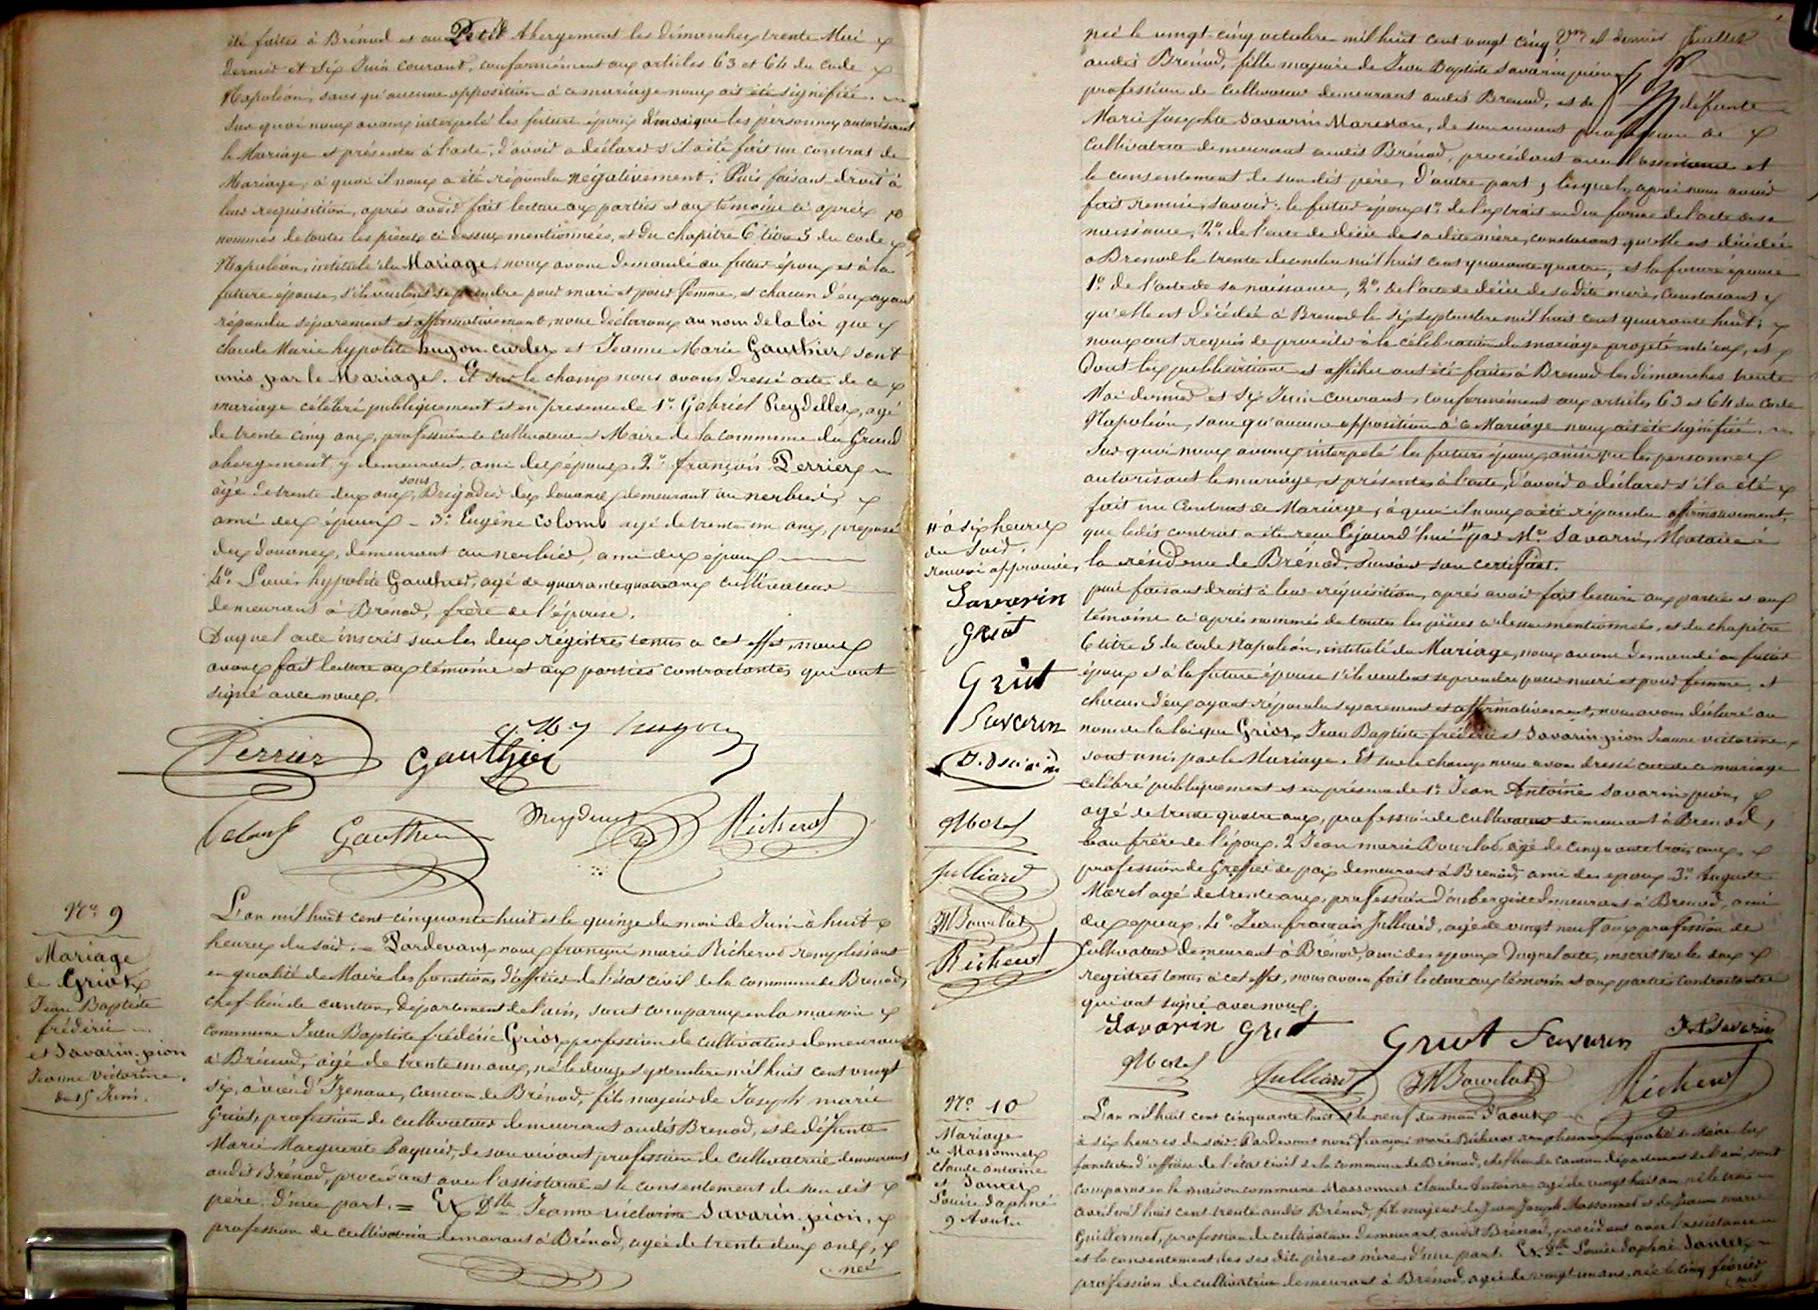 été faites à Brénod et au Petit Abergement les dimanches trente Mai
dernier et six Juin courant, conformément aux articles 63 et 64 du code
Napoléon, sans qu'aucune opposition à ce mariage nous ait été signifiée.
Sur quoi nous avons interpelé les futurs époux ainsi que les personnes autorisant
le Mariage et présentes à l'acte, d'avoir à déclarer s'il a été fait un contrat de
Mariage, à quoi il nous a été répondu négativement; Puis faisant droit à
leur requisition, après avoir fait lecture aux parties et aux témoins ci après
nommés de toutes les pièces ci dessus mentionnées, et du chapitre 6 titre 5 du code
Napoléon, intitulé du Mariage, nous avons demandé au futur époux et à la
future épouse, s'ils veulent se prendre pour mari et pour femme, et chacun d'eux ayant
répondu séparement et affirmativement, nous déclarons au nom de la loi que
claude Marie hypolite hugon-curlet et Jeanne Marie Gauthier sont
unis par le Mariage. Et sur le champ nous avons dressé acte de ce
mariage célébré publiquement et en présence de 1° Gabriel Reydellet, agé
de trente cinq ans, profession de cultivateur et Maire de la commune du Grand
abergement y demeurant, ami des époux. 2° françois Perrier
âgé de trente deux ans, sous Brigadier des douanes, demeurant au nerbier,
ami des époux - 3° Eugène Colomb agé de trente un ans, preposé
des douanes, demeurant au nerbier, ami des époux
4° Louis hypolite Gauthier, agé de quarante quatre ans cultivateur
demeurant à Brénod, frère de l'épouse.
Duquel acte inscrit sur les deux régistres tenus à cet effet, nous
avons fait lecture aux témoins et aux parties contractantes qui ont
signé avec nous.
hugon
Perrier Gauthier
Colomb Gauthier Richerot
N° 9
Mariage
de Griot
Jean Baptiste
frédéric
et Savarin-pion
Jeanne victorine.
du 15 Juin.
L'an mil huit cent cinquante huit et le quinze du mois de Juin à huit
heures du soir. = Pardevant nous françois marie Richerot remplissant
en qualité de Maire les fonctions d'officier de l'état civil de la commune de Brenod,
chef-lieu de canton, département de l'ain, sont comparus en la maison
commune Jean Baptiste frédéric Griot, profession de cultivateur demeurant
à Brénod, âgé de trente un ans, né le douze septembre mil huit cent vingt
six, à vieu d'Izenave, canton de Brénod, fils majeur de Joseph marie
Griot, profession de cultivateur demeurant audit Brenod, et de défunte
Marie Marguerite Paquier, de son vivant profession de cultivatrice demeurant
audit Brénod, procédant avec l'assistance et le consentement de son dit
père. d'une part. = Et Dlle Jeanne victorine Savarin-pion,
profession de cultivatrice demeurant à Brénod, agée de trente deux ans,
née
née le vingt cinq octobre mil huit cent vingt cinq et dernier feuillet
audit Brénod, fille majeure de Jean Baptiste Savarin pion
profession de cultivateur demeurant audit Brenod, et de défunte
Marie Josephte Savarin Marestan, de son vivant profession de
cultivatrice demeurant audit Brénod, procédant avec l'assistance et
le consentement de son dit père, d'autre part; lesquels, après nous avoir
fait remise, savoir: le futur époux 1° de l'extrait en due forme de l'acte de sa
naissance, 2° de l'acte de décès de sa dite mère, constatant qu'elle est décédée
à Brenod le trente decembre mil huit cent quarante quatre; et la future épouse
1° de l'acte de sa naissance, 2° de l'acte de décès de sa dite mère, constatant
qu'elle est décédée à Brenod le six septembre mil huit cent quarante huit;
nous ont requis de procéder à la célébration du mariage projeté entr'eux, et
Dont les publications et affiches ont été faites à Brenod les dimanches trente
Mai dernier et six Juin courant, conformément aux articles 63 et 64 du code
Napoléon, sans qu'aucune opposition à ce Mariage nous ait été signifiée.
Sur quoi nous avons interpelé les futurs époux ainsi que les personnes
autorisant le mariage, et présentes à l'acte, d'avoir à déclarer s'il a été
fait un Contrat de Mariage, à quoi il nous a été répondu affirmativement,
que ledit contrat a été reçu Cejourd'hui # par Me Savarin, Notaire à
la résidence de Brénod, suivant son certificat.
# à six heures
du soir.
renvoi approuvé
Savarin
Griot
Griot
Savarin
Morel
Julliard
Richerot
puis faisant droit à leur réquisition, après avoir fait lecture aux parties et aux
témoins ci après nommés de toutes les pièces ci dessus mentionnées, et du chapitre
6 titre 5 du code Napoléon, intitulé du Mariage, nous avons demandé au futur
époux et à la future épouse s'ils veulent se prendre pour mari et pour femme, et
chacun d'eux ayant répondu séparement et affirmativement, nous avons déclaré au
nom de la loi que Griot Jean Baptiste frédéric et Savarin-pion Jeanne victorine,
sont unis par le Mariage. Et sur le champ nous avons dressé acte de ce mariage
célébré publiquement et en présence de 1° Jean Antoine Savarin pion,
agé de trente quatre ans, profession de cultivateur demeurant à Brenod,
beau frère de l'époux. 2° Jean marie Bourlot âgé de cinquante trois ans,
profession de Greffier de paix demeurant à Brénod, ami des époux 3° auguste
Morel agé de trente ans, profession d'aubergiste demeurant à Brenod, ami
des époux. 4° Jean françois Julliard, agé de vingt neuf ans profession de
Cultivateur demeurant à Brénod, ami des époux Duquel acte, inscrit sur les deux
registres tenus à cet effet, nous avons fait lecture aux témoins et aux parties contractantes
qui ont signé avec nous.
Savarin Griot Griot Savarin Savarin
Morel Julliard Richerot
N° 10
Mariage
de Massonnet
claude antoine
et Jantet
Louise daphné
9 Août
L'an mil huit cent cinquante huit et le neuf du mois d'aout
à six heures du soir. Pardevant nous françois marie Richerot remplissant en qualité de Maire les
fonctions d'officier de l'état civil de la commune de Brénod, chef lieu de canton département de l'ain, sont
comparus en la maison commune Massonnet claude Antoine agé de vingt huit ans né le trois
avril mil huit cent trente audit Brénod, fils majeur de Jean Joseph Massonnet et de Jeanne marie
Guillermet, profession de cultivateurs demeurant audit Brénod, procédant avec l'assistance
et le consentement de ses dits père et mère, d'une part. Et Dlle Louise daphné Jantet
profession de cultivatrice demeurant à Brénod, agée de vingt un ans, née le cinq février
mil